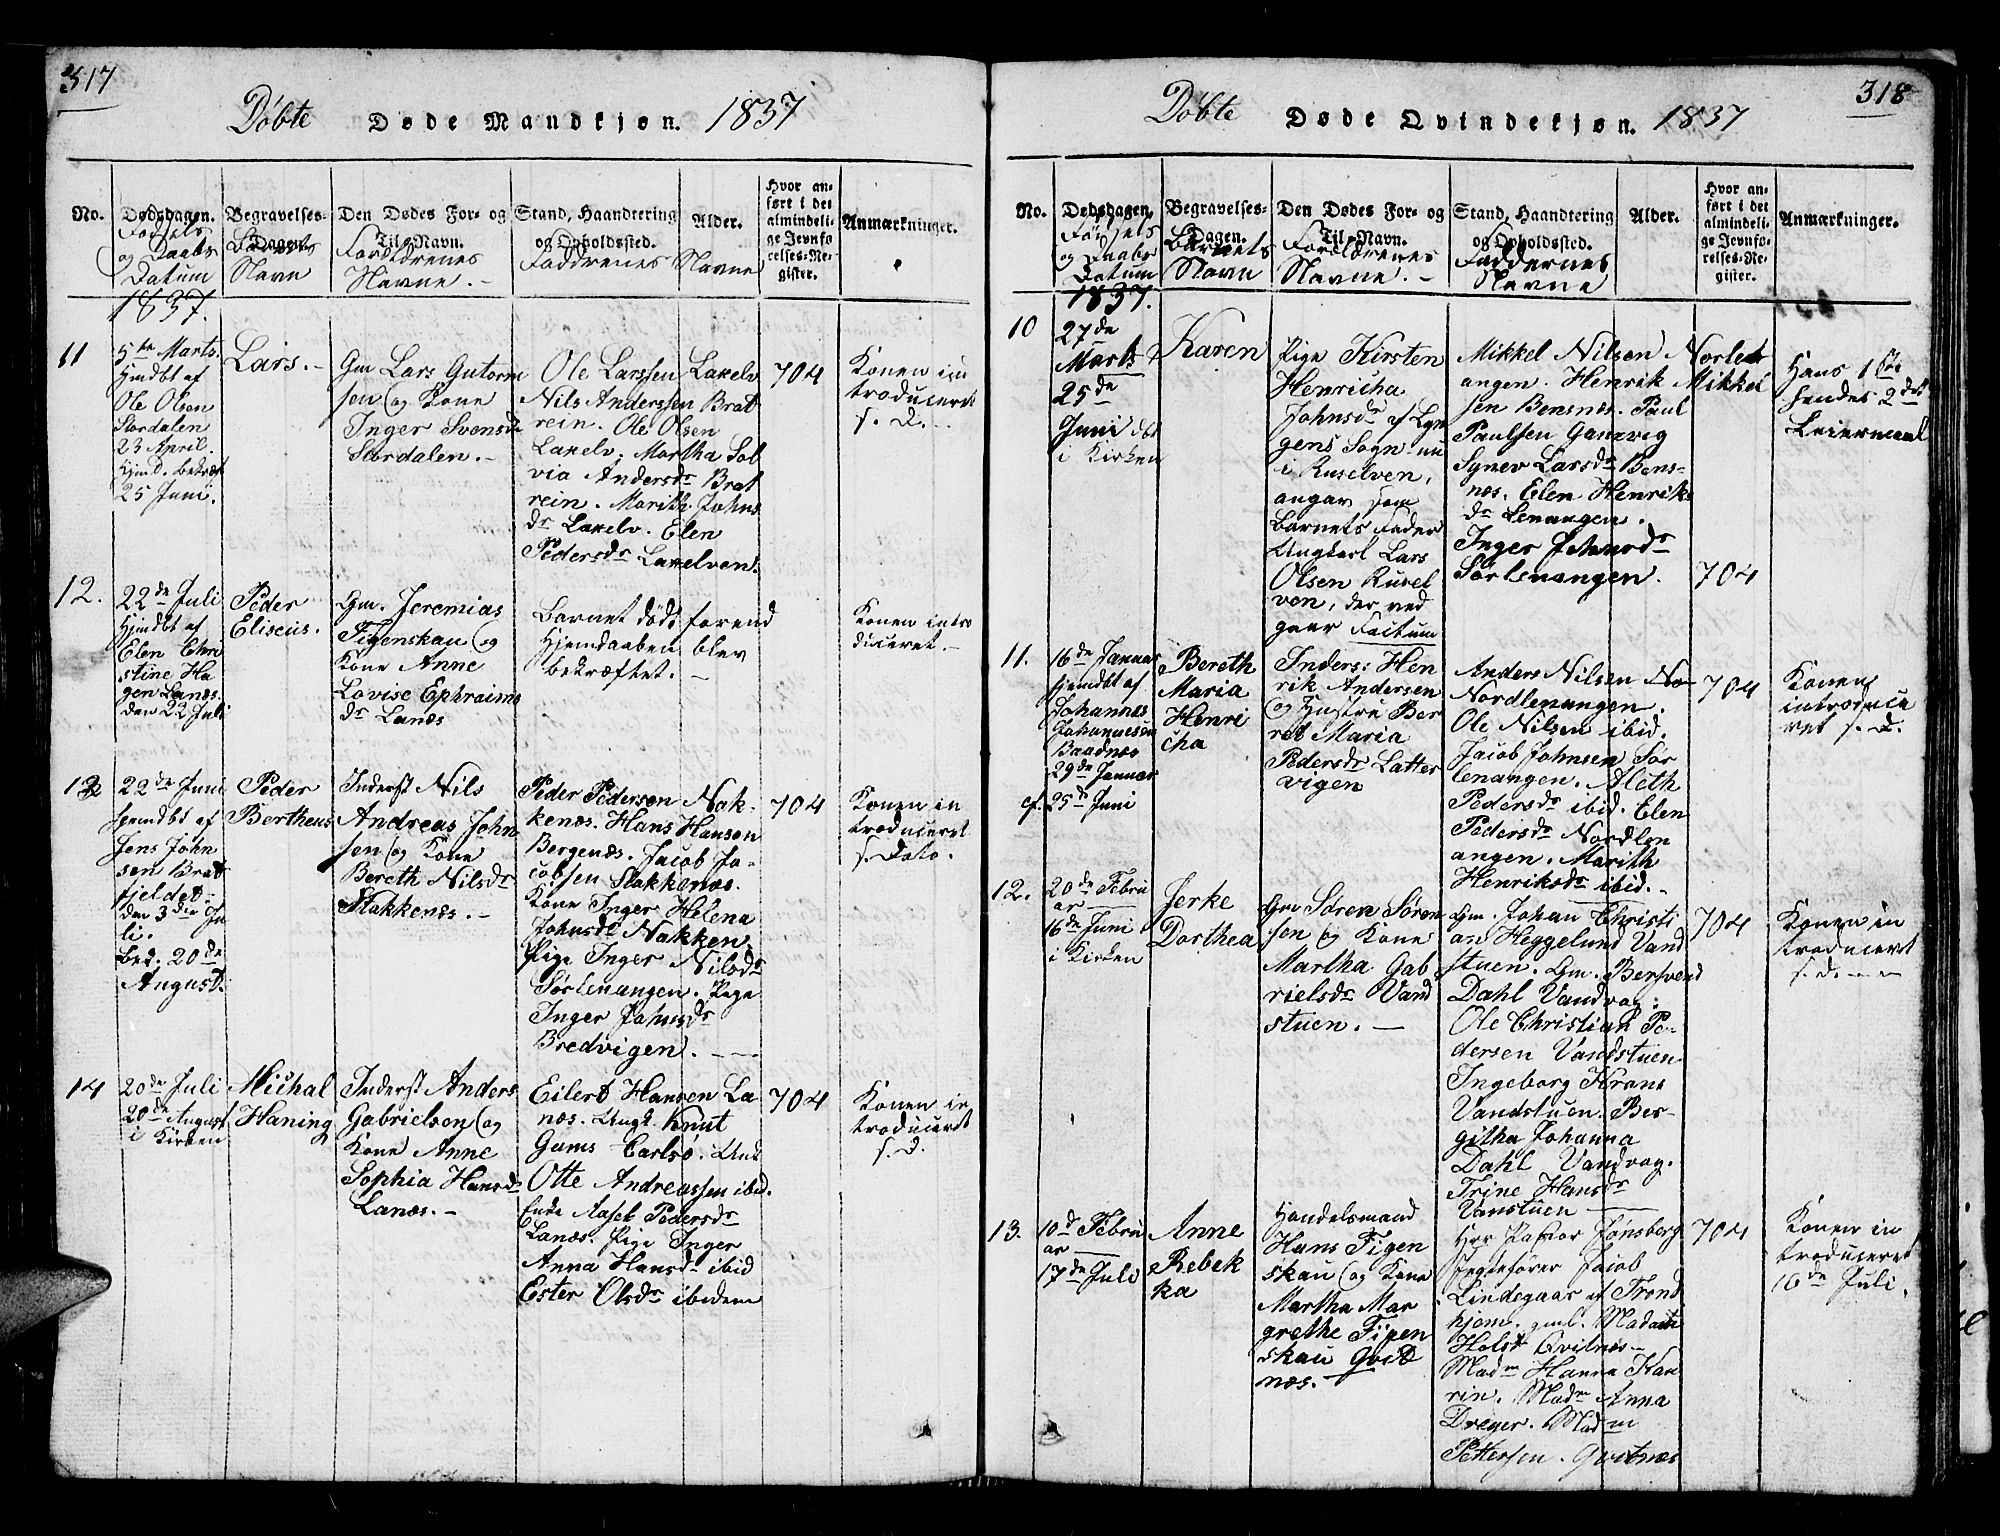 317
Döbte Døde Mandkjøn. 1837
No.
Dødsdagen.
Fødsels
og Daabs
Datum
1837.
Begravelses-
Dagen.
Barnets
Navn
Den Dødes For- og
Til-Navn.
Forældrenes
Navne. -
Stand, Haandtering
og Opholdssted.
Faddrenes
Alder.
Navne
Hvor an-
ført i det
almindeli-
ge Jevnfø
relses-Re-
gister.
Anmærkninger.
11
5te Marts.
Hjmdbt af
Ole Olsen
Stordalen
23 April.
Hjmd. bekræft
25 Juni.
Lars. -
Gm Lars Gutorm
sen og Kone
Inger Svensdr
Stordalen. -
Ole Larssen Lakelv
Nils Anderssen Brat
rein. Ole Olsen
Lakelv. Martha Sol
via Andersdr Brat
rein. Marith Johns
dr Lakelv. Elen
Pedersdr Lakelven.
704
Konen in
troduceret
s. D. -
12.
22de Juli
Hjmdbt af
Elen Chri
stine Ha
gen Lanæs.
den 22 Juli
Peder
Eliseus.
Gm. Jeremias
Figenskau og
Kone Anne
Lovise Ephraims
dr Lanæs
Barnet døde forend
Hjemdaaben blev
bekræftet. -
Konen intro
duceret. -
13
22de Juni
hjemdbt af
Jens John
sen Brat
fjeldet -
den 3die Ju
li.
Bed. 20de
August.
Peder
Bertheus
Inderst Nils
Andreas John
sen og Kone
Bereth Nilsdr
Stakkenæs. -
Peder Pedersen Nak-
kenæs. Hans Hansen
Bergenæs. Jacob Ja-
cobsen Stakkenæs.
Kone Inger Helena
Johnsdr Nakken.
Pige Inger Nilsdr
Sörlenangen. Pige
Inger Johnsdr
Bredvigen. - - -
704
Konen in
troduceret
s. Dato.
14
20de Juli
20de August
i Kirken
Michal
Haning
Inderst Anders
Gabrielsen og
Kone Anne
Sophia Hansdr
Lanæs. -
Eilert Hansen La
næs. Ungk. Knut
Gams Carlsö. Unk
Otte Andreassen ibid.
Enke Aasel Pedersdr
Lanæs. Pige Inger
Anna Hansdr ibid
Ester Olsdr ibidem
704
Konen in
troduceret
s. D.
318
Döbte Døde Qvindekjøn. 1837
No.
Dødsdagen.
Fødsels
og Daabs
Datum
1837.
Begravelses-
Dagen.
Barnets
Navn
Den Dødes For- og
Til-Navn.
Forældrenes
Navne. -
Stand, Haandtering
og Opholdssted.
Faddernes
Navne
Alder.
Hvor an-
ført i det
almindeli-
ge Jevnfø-
relses-Re-
gister.
Anmærkninger.
10
27de
Marts
25de
Juni dbt
i Kirken
Karen
Pige Kirsten
Henricha
Johnsdr af Lyn
gens Sogn nu
i Ruselven,
angav som
Barnets Fader
Ungkarl Lars
Olsen Rusel
ven, der ved
gaar Factum
Mikkel Nilsen Norlen
angen. Henrik Mikkel
sen Bensnes. Paul
Paulsen Ganzvig
Synev Larsdr Bens-
næs. Elen Henriks
dr Lenangen.
Inger Johnsdr
Sörlenangen.
704
Hans 1ste
hendes 2det
Leiermaal
11.
16de Januar
hjemdbt af
Johannes
Johannesen
Baadnæs
29de Januar
cf. 25de Juni
Bereth
Maria
Henri
cha
Inders: Hen
rik Andersen
og Hustru Ber
ret Maria
Pedersdr Latter
vigen
Anders Nilsen
Nordlenangen.
Ole Nilsen ibid.
Jacob Johnsen Sör
lenangen. Aleth
Pedersdr ibid. Elen
Pedersdr Nordlen
angen. Marith
Henriksdr ibid. -
704
Konen
introduce
ret s. D.
12.
20de Febru
ar
16de Juni
i Kirken
Jerke
Dorthea
Gm Sören Sören
sen og Kone
Martha Gab
rielsdr Vand
stuen. -
Gm. Johan Christi
an Heggelund Vand
stuen. Gm. Bersvend
Dahl Vandvag:
Ole Christian Pe-
dersen Vandstuen
Ingeborg Krans
Vandstuen. Ber-
githa Johanna
Dahl Vandvag.
Trine Hansdr
Vanstuen
704
Konen in
troduceret
s. D. - - -
13.
10d Febru
ar
17de Juli
Anne
Rebek
ka
Handelsmand
Hans Figen
skau og Kone
Martha Mar
grethe Figen
skau Qvit
næs. -
Hrr Pastor Jönsberg
Jegtefører Jacob
Lindegaar af Trond
hjem. gml. Madam
Holst Qvitnæs -
Madm Hanna Kau
rin. Madm Anna
Dreyer. Madm
Pettersen. Qvitnæs
704
Konen in
troduceret
16de Juli.